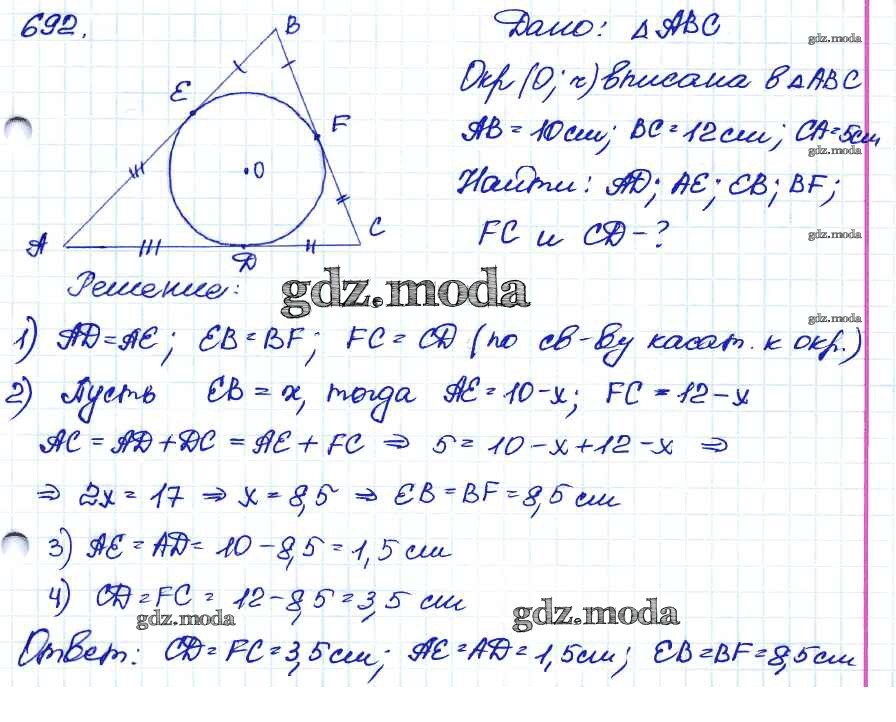 692.
B
E
F
O
A
D
C
Дано: △ABC
gdz.moda
Окр (O; r) вписана в △ABC
AB = 10 см; BC = 12 см; CA = 5 см
gdz.moda
Найти: AD; AE; EB; BF;
FC и CD - ?
gdz.moda
Решение:
gdz.moda
gdz.moda
1) AD = AE; EB = BF; FC = CD (по св-ву касат. к окр.)
2) Пусть EB = x, тогда AE = 10 - x; FC = 12 - x
AC = AD + DC = AE + FC ⇒ 5 = 10 - x + 12 - x ⇒
⇒ 2x = 17 ⇒ x = 8,5 ⇒ EB = BF = 8,5 см
3) AE = AD = 10 - 8,5 = 1,5 см
4) CD = FC = 12 - 8,5 = 3,5 см
gdz.moda
gdz.moda
Ответ: CD = FC = 3,5 см; AE = AD = 1,5 см; EB = BF = 8,5 см